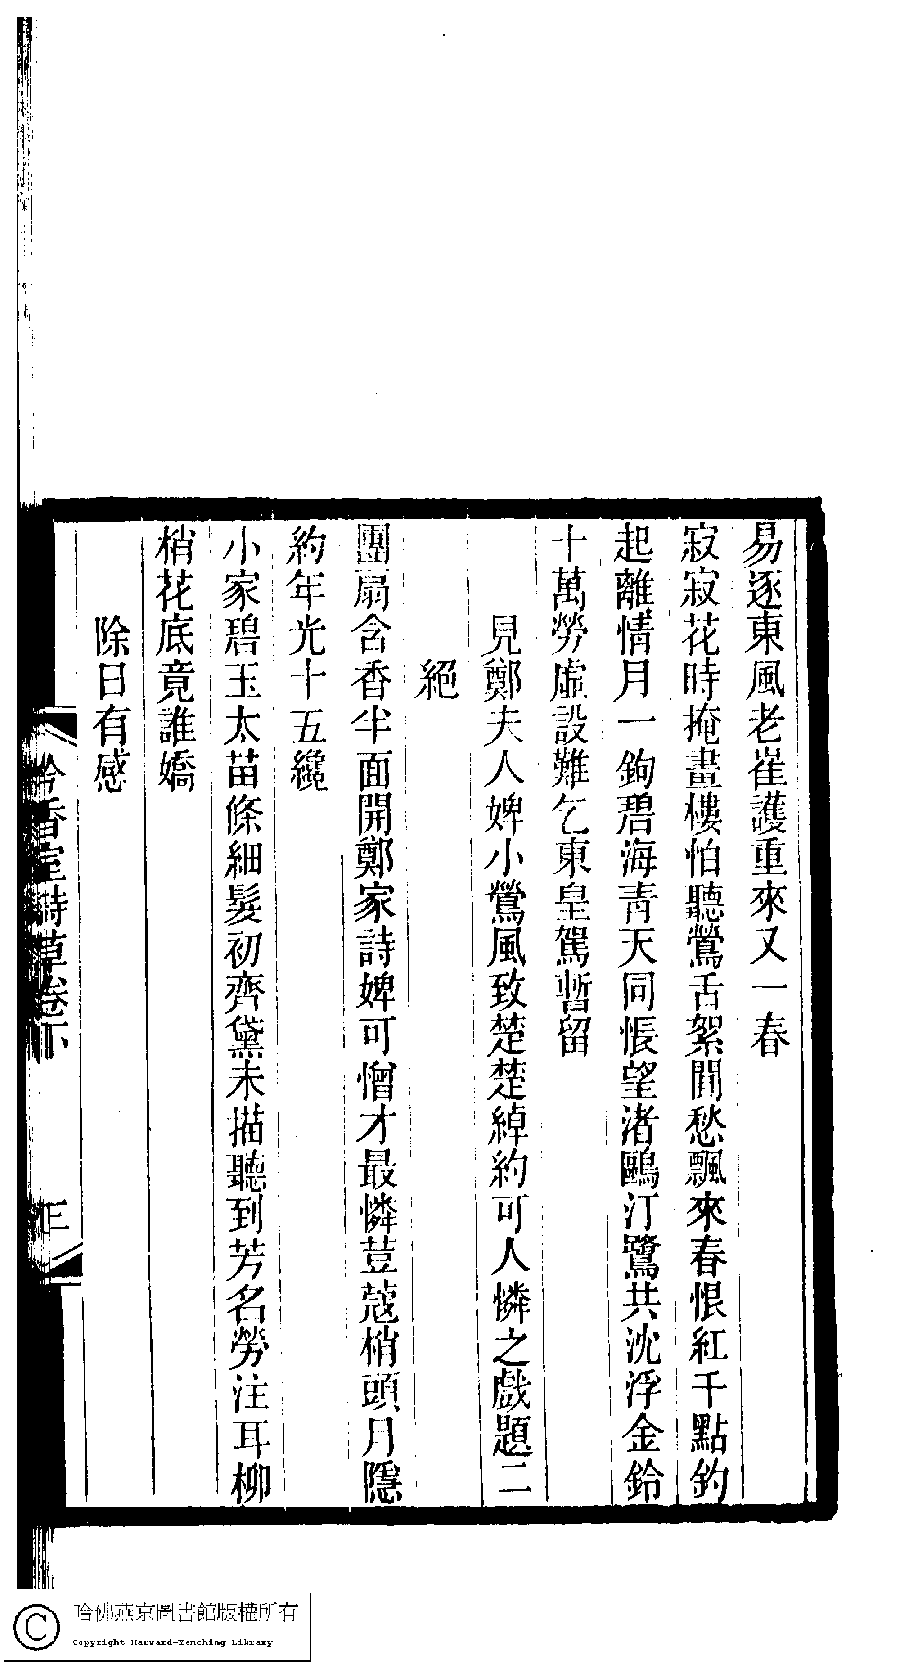 易逐東風老崔護重來又一春
寂寂花時掩畫樓怕聽鶯舌絮閒愁飄來春恨紅千點釣
起離情月一鉤碧海青天同悵望渚鷗汀鷺共沈浮金鈴
十萬勞虛設難乞東皇駕暫留
見鄭夫人婢小鶯風致楚楚綽約可人憐之戲題二
絕
團扇含香半面開鄭家詩婢可憎才最憐荳蔻梢頭月隱
約年光十五纔
小家碧玉太苗條細髮初齊黛未描聽到芳名勞注耳柳
梢花底竟誰嬌
除日有感
香室詩草卷下
哈佛燕京圖書館版權所有
Copyright Harvard-Yenching Library